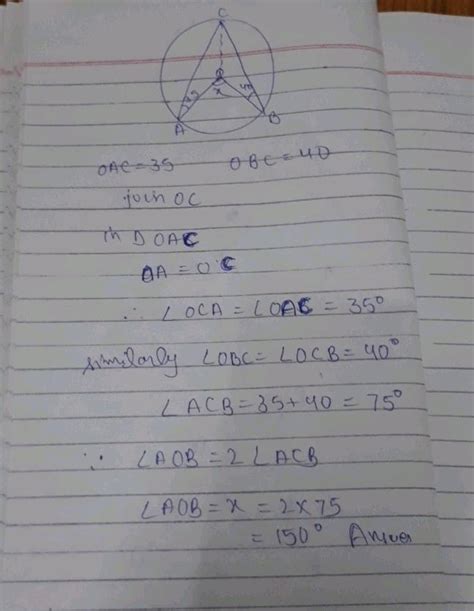 C
O
35
x
40
A
B
OAC = 35 OBC = 40
join OC
in Δ OAC
OA = OC
∴ ∠OCA = ∠OAC = 35°
similarly ∠OBC = ∠OCB = 40°
∠ACB = 35 + 40 = 75°
∵ ∠AOB = 2 ∠ACB
∠AOB = x = 2 x 75
= 150° Answer